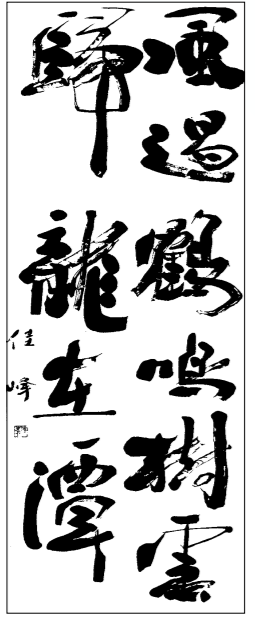 風過鶴鳴樹雲
歸龍在潭
佳峰